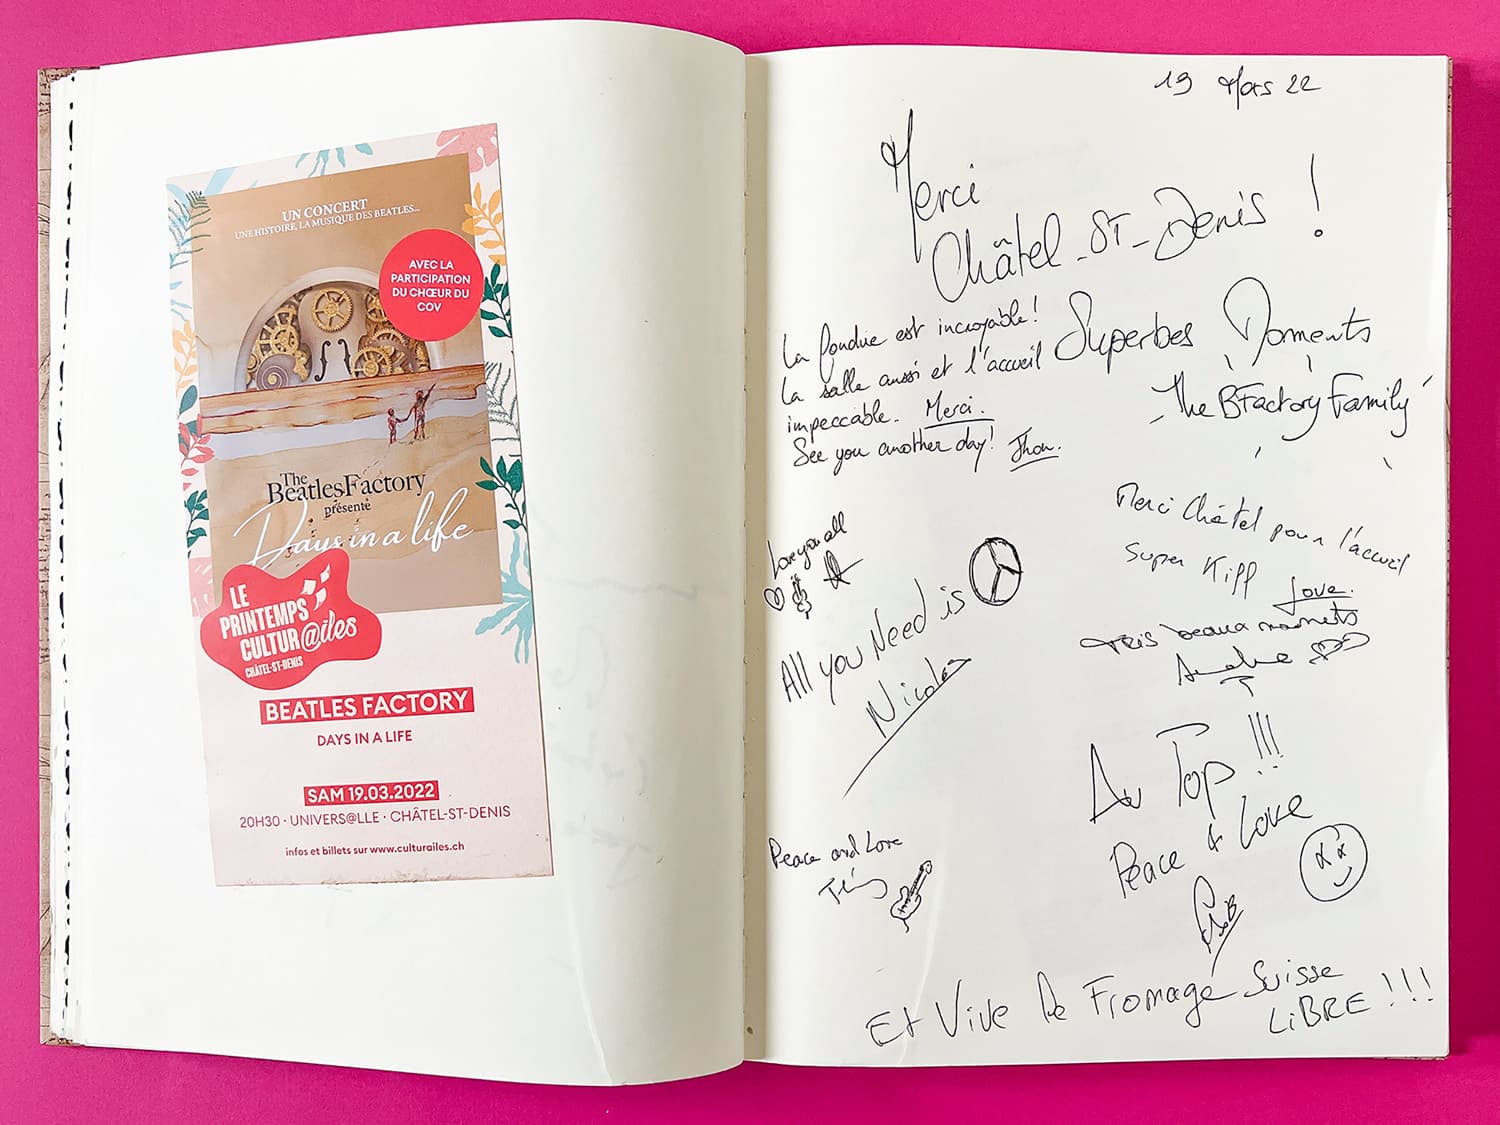 UN CONCERT
UNE HISTOIRE, LA MUSIQUE DES BEATLES...
AVEC LA
PARTICIPATION
DU CHŒUR DU
COV
The
BeatlesFactory
présente
Days in a life
LE
PRINTEMPS
CULTUR@ILES
CHÂTEL-ST-DENIS
BEATLES FACTORY
DAYS IN A LIFE
SAM 19.03.2022
20H30 · UNIVERS@LLE · CHÂTEL-ST-DENIS
infos et billets sur www.culturailes.ch
19 Mars 22
Merci
Châtel-St-Denis !
Superbes Moments
The BFactory Family
La fondue est incroyable!
La salle aussi et l'accueil
impeccable. Merci.
See you another day! Jhon.
Merci Châtel pour l'accueil
Super Kiff Love.
Très beaux moments
Love you all
All you Need is
Nicolas
Au Top !!!
Peace & Love
Seb
Peace and Love
Et Vive le Fromage Suisse
LiBRE !!!